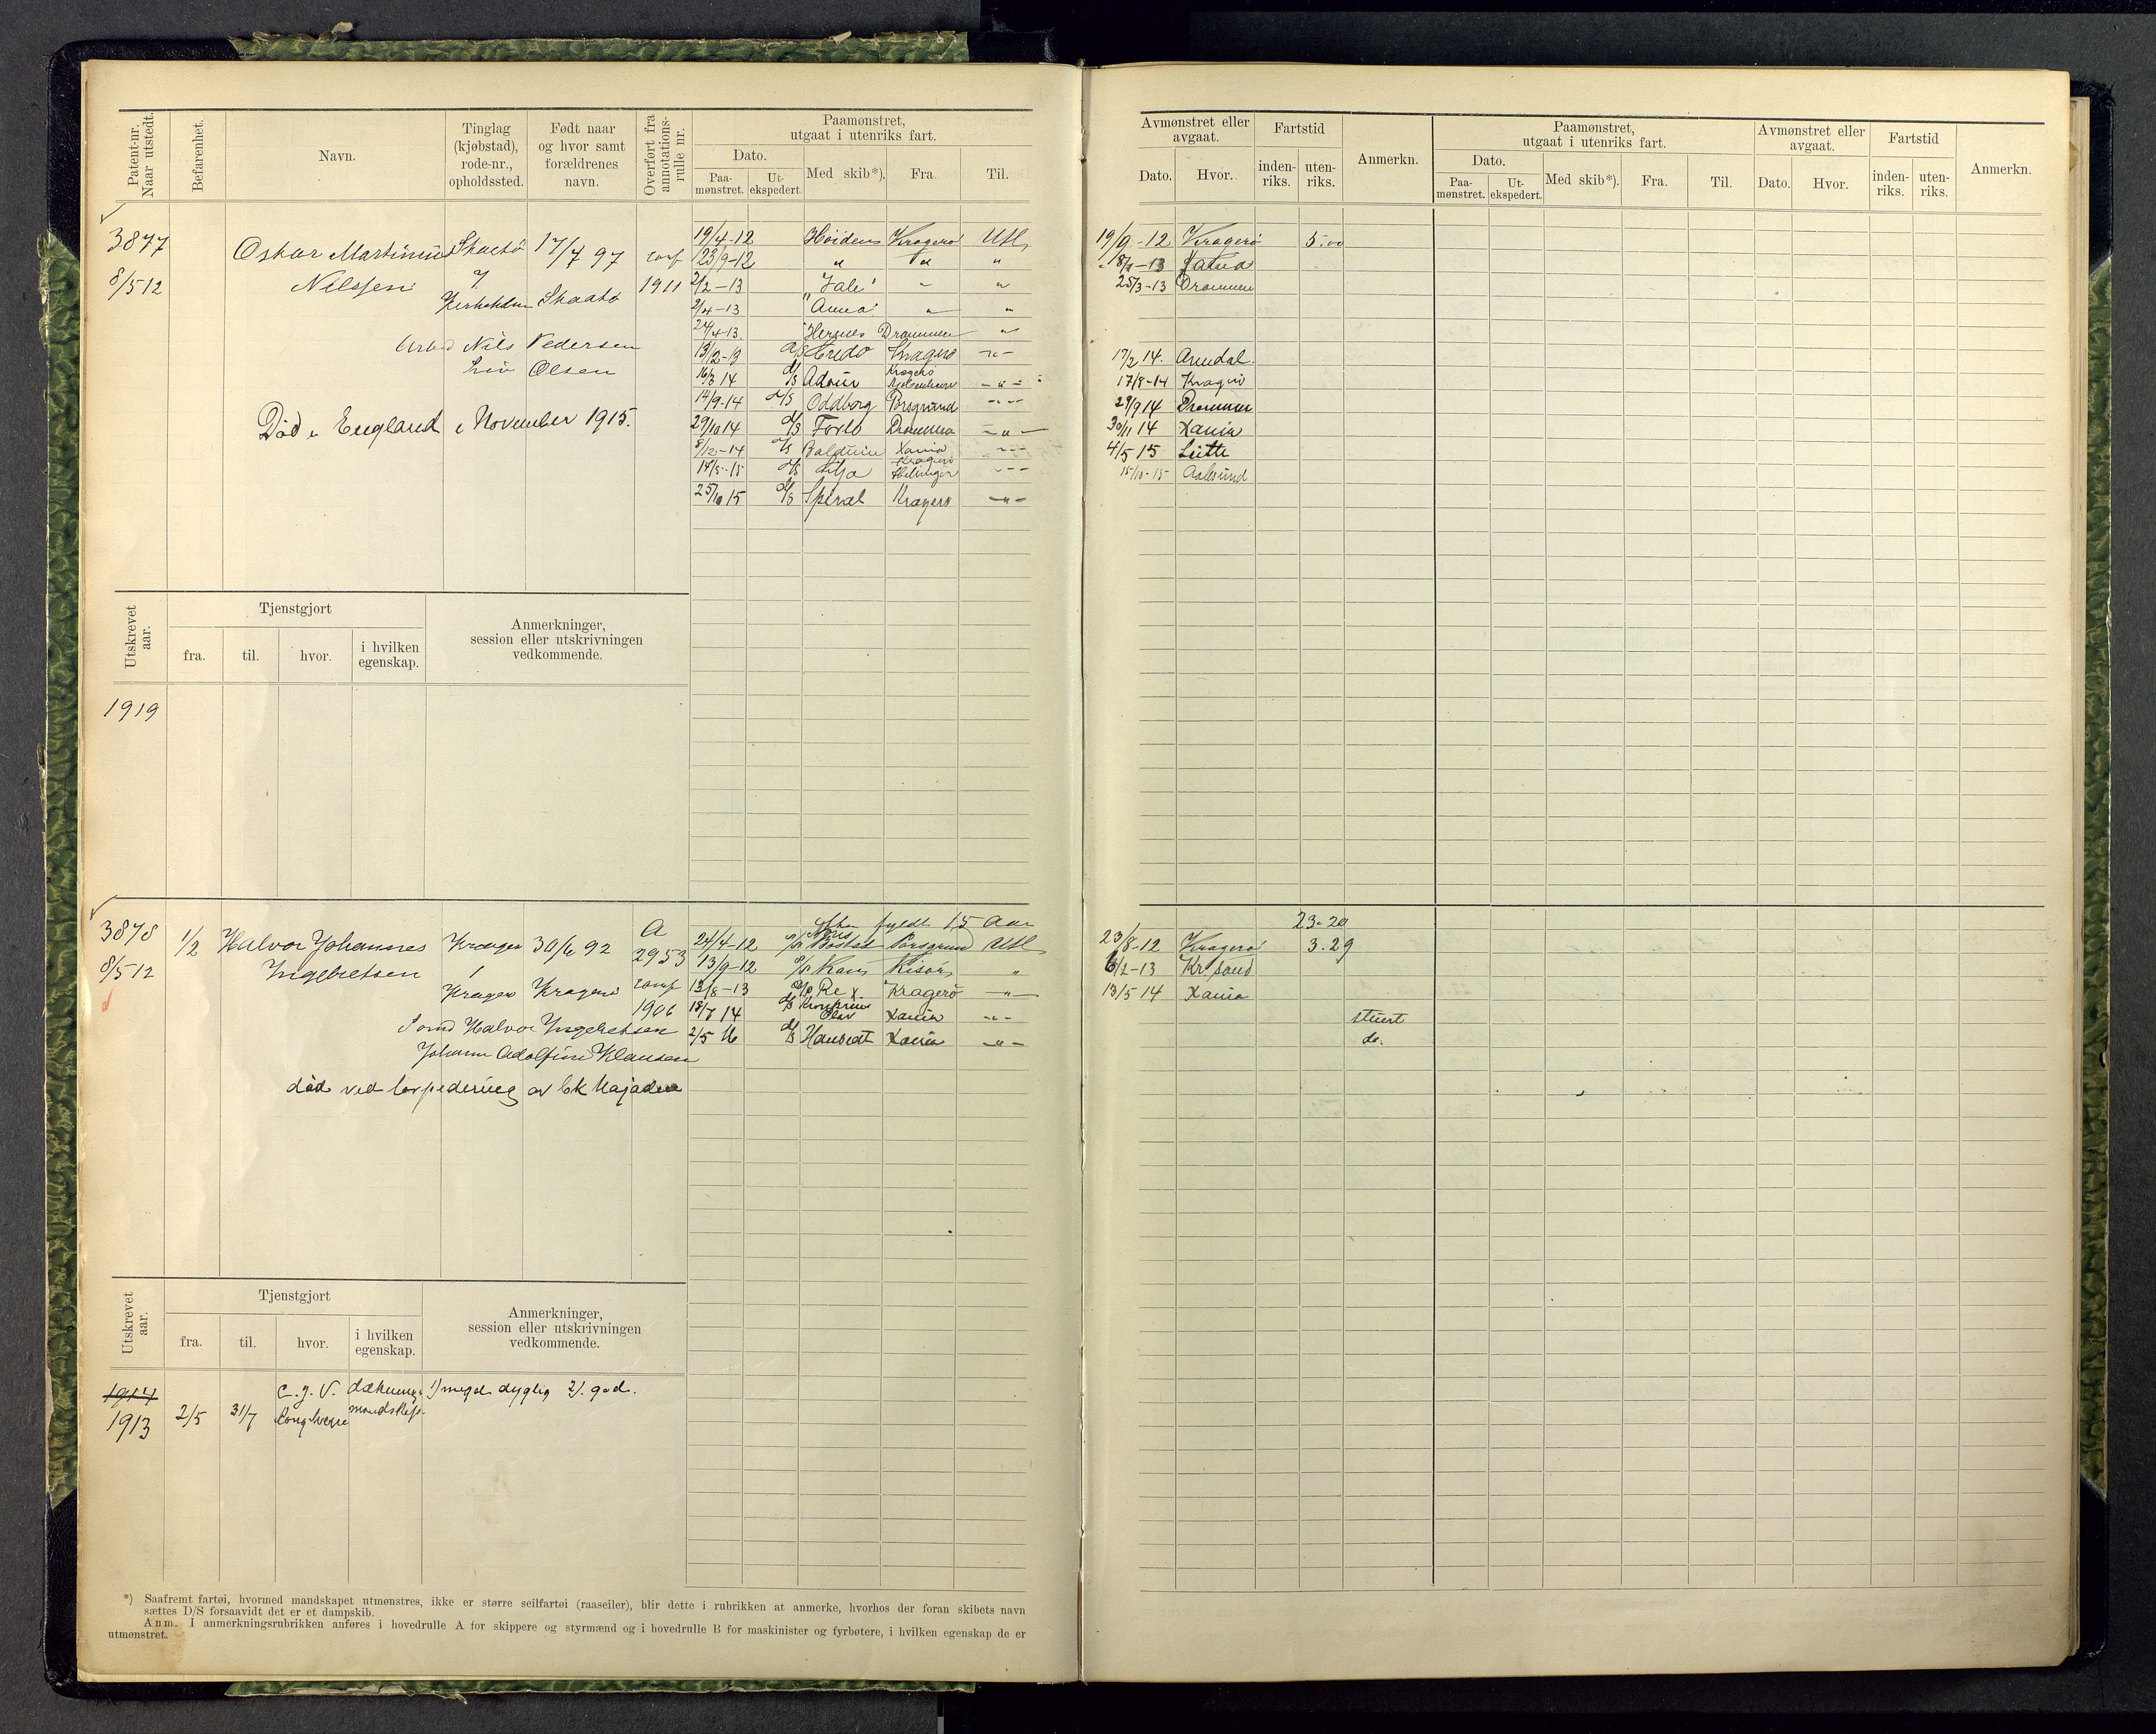 Patent-nr. Naar utstedt.
Befarenhet.
Navn.
Tinglag (kjøbstad), rode-nr., opholdssted.
Født naar og hvor samt forældrenes navn.
Overført fra annotations-rulle nr.
Paamønstret, utgaat i utenriks fart.
Dato.
Paa-mønstret.
Ut-ekspedert.
Med skib*).
Fra.
Til.
Avmønstret eller avgaat.
Dato.
Hvor.
Fartstid
inden-riks.
uten-riks.
Anmerkn.
Paamønstret, utgaat i utenriks fart.
Dato.
Paa-mønstret.
Ut-ekspedert.
Med skib*).
Fra.
Til.
Avmønstret eller avgaat.
Dato.
Hvor.
Fartstid
inden-riks.
uten-riks.
Anmerkn.
3877
8/5 12
Oskar Martinius Nilssen
Skaatø
7
17/7 97
Skaatø
1911
Nils Pedersen
Liv Olsen
Død i England i November 1915.
19/4-12 Høidens Kragerø Utl 19/9-12 Kragerø 5.00
23/9-12 " " "
2/2-13 " " 25/3-13 Drammen
2/4-13 "Anna" " "
24/4-13 Hermes Drammen "
Kragerø -"- 17/2 14. Arendal
14 D/S Kragerø -"- 17/8-14 Kragerø
14/9-14 D/S Oddborg Porsgrund -"- 29/9 14 Drammen
29/10 14 D/S Drammen -"- 30/11 14 Xania
8/12-14 D/S Balduin Xania -"- 4/5 15
D/S Silja Kragerø -"- 15/10-15 Aalesund
25/10 15 D/S Spiral Kragerø -"-
Utskrevet aar.
Tjenstgjort
fra.
til.
hvor.
i hvilken egenskap.
Anmerkninger, session eller utskrivningen vedkommende.
1919
3878
8/5 12
1/2
Halvor Johannes Ingebretsen
Kragerø
1
Kragerø
30/6 92
Kragerø
A
2953
1906
Halvor Ingebretsen
Johanne Adolfine Klausen
død ved torpedering av
fyldt 15 Aar 23-20
24/4-12 Porsgrund Utl 23/8-12 Kragerø 3.29
13/9-12 Risør " 6/2-13 Kr.sand
13/8-13 Rex Kragerø -"- 13/5 14 Xania
18/7 14 D/S Kronprins Olav Xania -"- stuert
2/5 16 D/S Hauseat Xania -"- do.
Utskrevet aar.
Tjenstgjort
fra.
til.
hvor.
i hvilken egenskap.
Anmerkninger, session eller utskrivningen vedkommende.
1914
1913 2/5 31/7 C.J.V. 1) meget dygtig 2). god.
*) Saafremt fartøi, hvormed mandskapet utmønstres, ikke er større seilfartøi (raaseiler), blir dette i rubrikken at anmerke, hvorhos der foran skibets navn
sættes D/S forsaavidt det er et dampskib.
Anm. I anmerkningsrubrikken anføres i hovedrulle A for skippere og styrmænd og i hovedrulle B for maskinister og fyrbøtere, i hvilken egenskap de er
utmønstret.